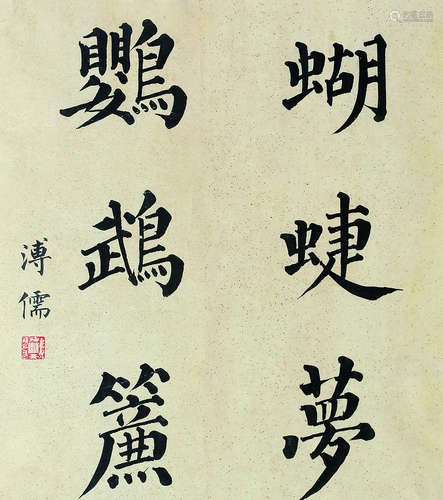 蝴蜨夢
鸚鵡簾
溥儒